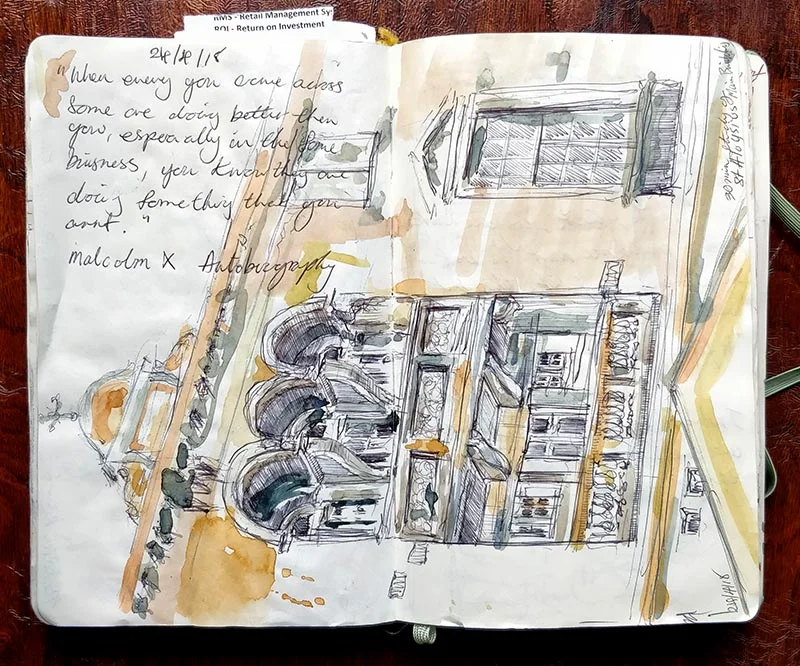 RMS - Retail Management Sy
ROI - Return on Investment
"When enery you come across
Some are doing better then
you, especially in the same
business, you know they are
doing Something that you
arnt."
malcolm X Autobiography
30 mins
St Aloysius